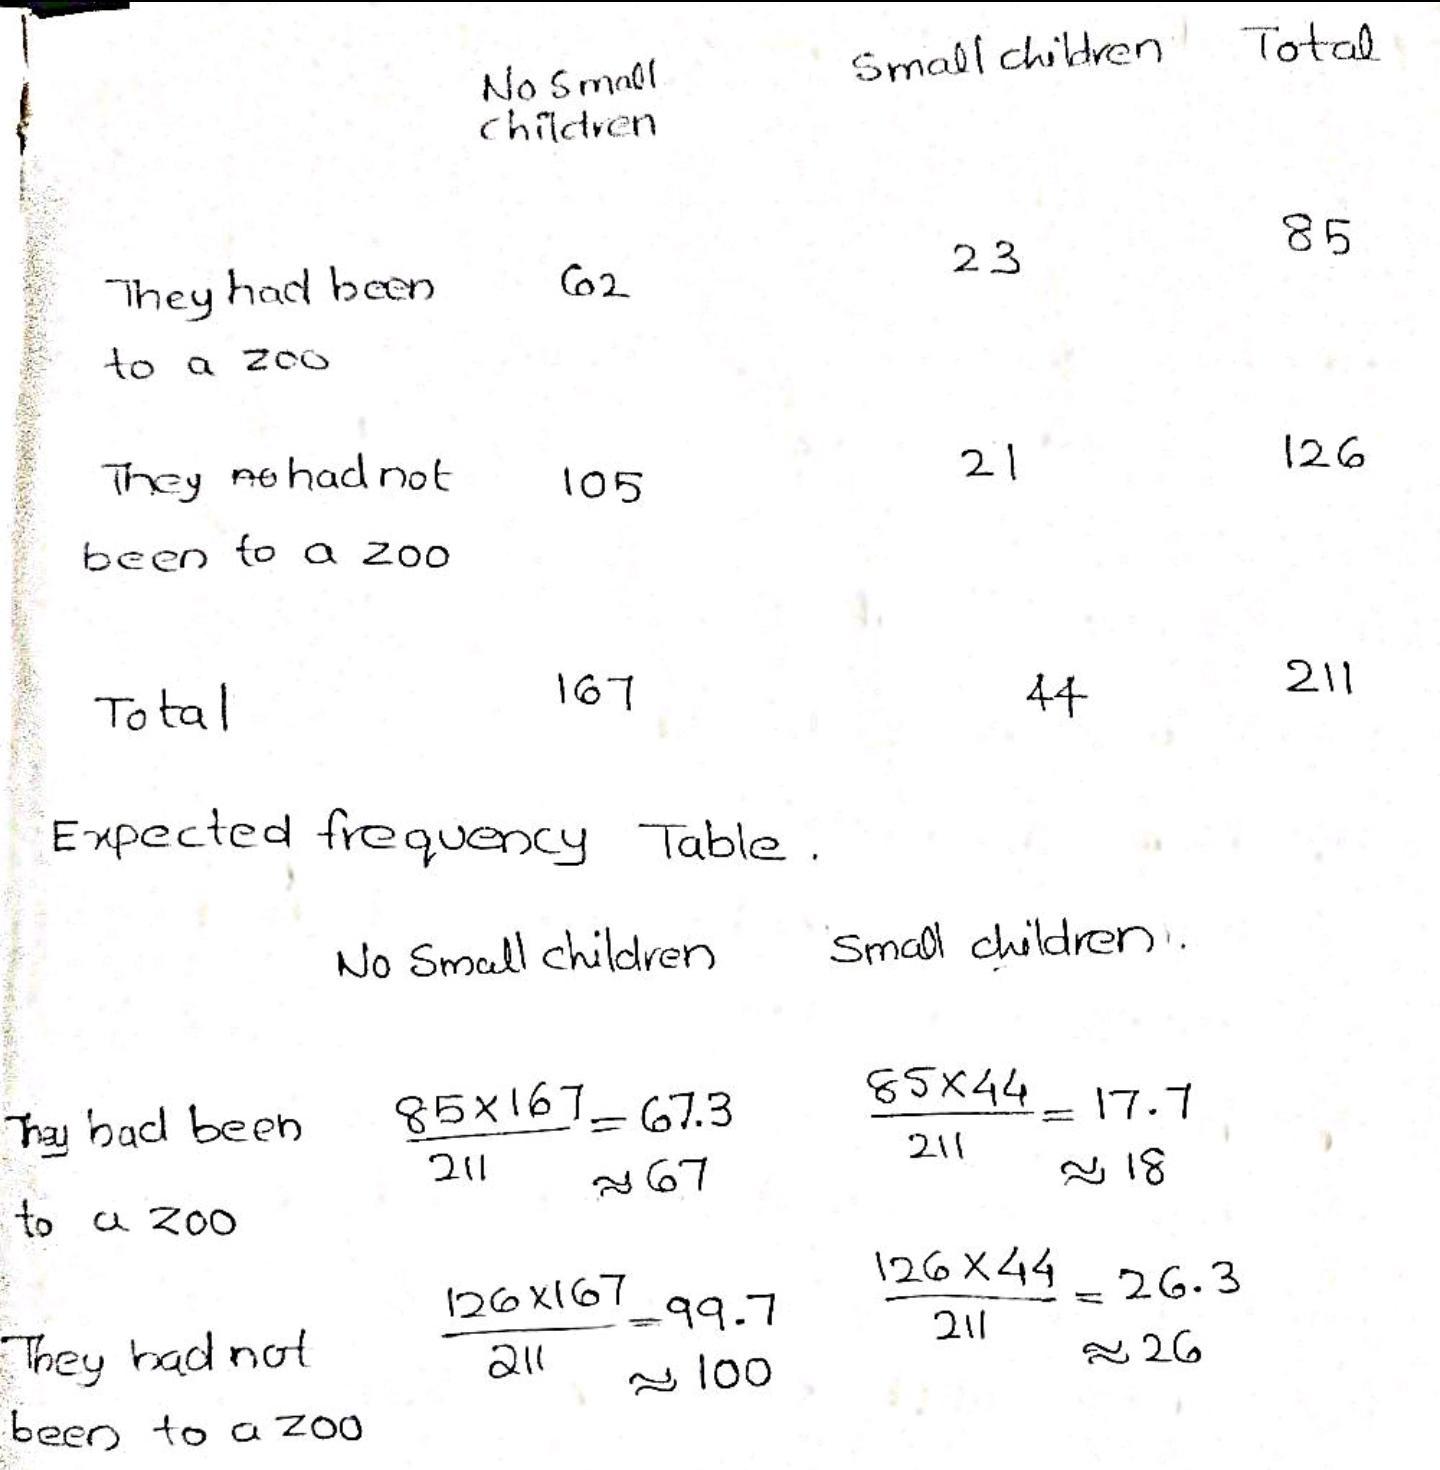 No Small Small children Total
children
They had been 62 23 85
to a zoo
They no had not 105 21 126
been to a zoo
Total 167 44 211
Expected frequency Table.
No Small children Small children.
They had been 85×167/211 = 67.3 85×44/211 = 17.7
≈67 ≈18
to a zoo
They had not 126×167/211 = 99.7 126×44/211 = 26.3
≈100 ≈26
been to a zoo